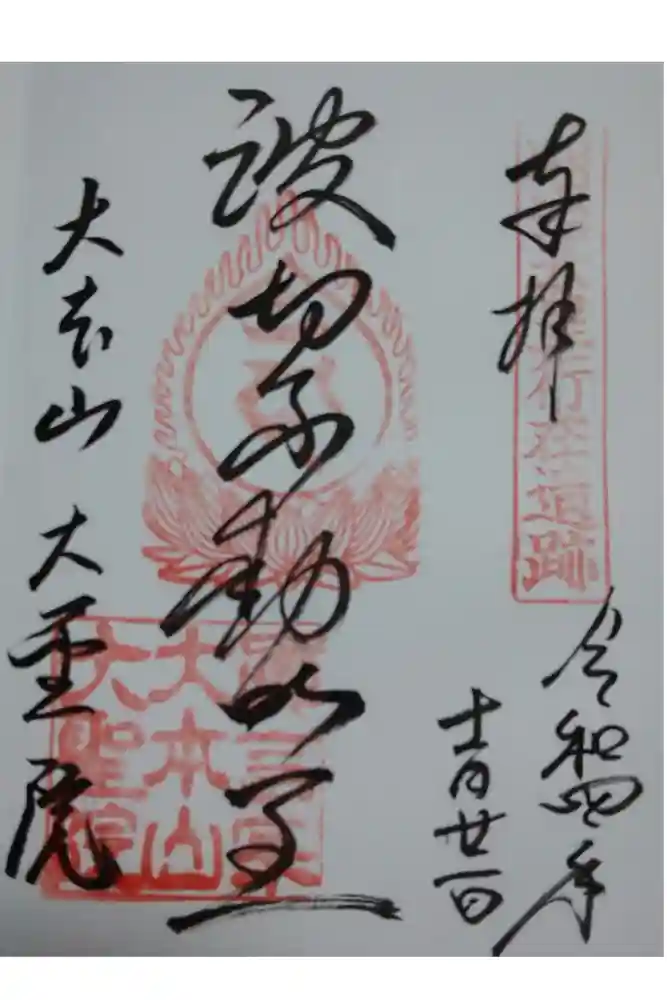 奉拝
遺跡
令和四年
十一月廿一日
波切不動明王
大本山 大聖院
真言宗
大本山
大聖院